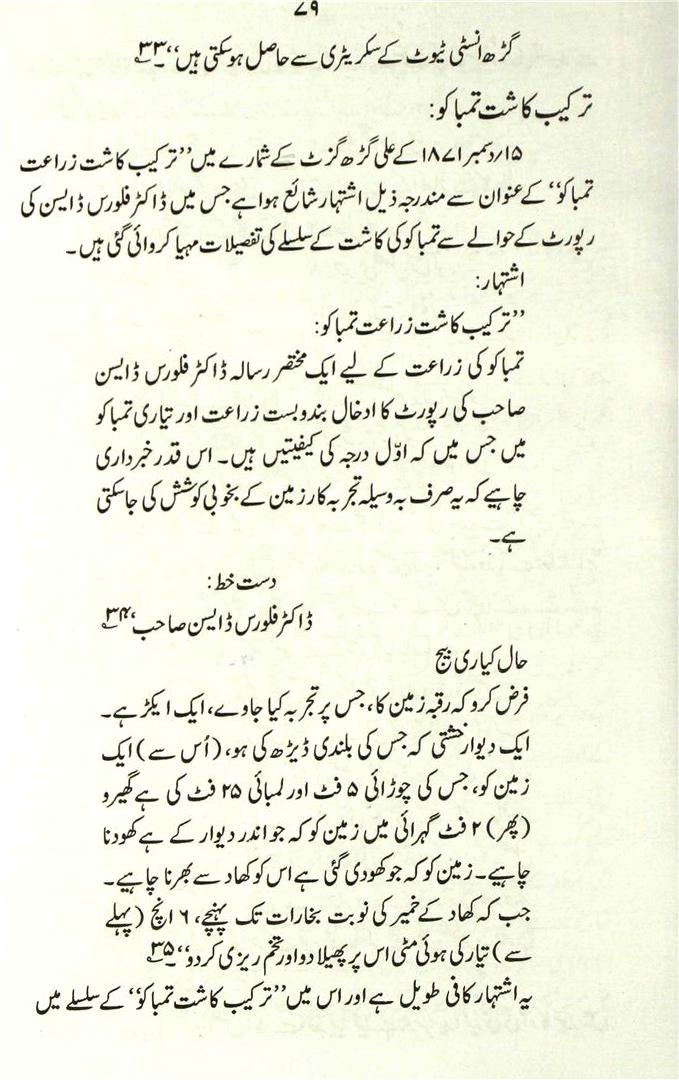 ۷۹
گڑھ انسٹی ٹیوٹ کے سکریٹری سے حاصل ہوسکتی ہیں‘‘۔۳۳؎
ترکیب کاشت تمباکو:
۱۵؍دسمبر ۱۸۷۱ کے علی گڑھ گزٹ کے شمارے میں ’’ترکیب کاشت زراعت
تمباکو‘‘ کے عنوان سے مندرجہ ذیل اشتہار شائع ہوا ہے جس میں ڈاکٹر فلورس ڈایسن کی
رپورٹ کے حوالے سے تمباکو کی کاشت کے سلسلے کی تفصیلات مہیا کروائی گئی ہیں۔
اشتہار:
’’ترکیب کاشت زراعت تمباکو:
تمباکو کی زراعت کے لیے ایک مختصر رسالہ ڈاکٹر فلورس ڈایسن
صاحب کی رپورٹ کا ادخال بندوبست زراعت اور تیاری تمباکو
میں جس میں کہ اوّل درجہ کی کیفیتیں ہیں۔ اس قدر خبرداری
چاہیے کہ یہ صرف بہ وسیلہ تجربہ کار زمین کے بخوبی کوشش کی جاسکتی
ہے۔
دست خط:
ڈاکٹر فلورس ڈایسن صاحب‘‘۳۴؎
حال کیاری بیج
فرض کرو کہ رقبہ زمین کا، جس پر تجربہ کیا جاوے، ایک ایکڑ ہے۔
ایک دیوار خشتی کہ جس کی بلندی ڈیڑھ کی ہو، (اُس سے) ایک
زمین کو، جس کی چوڑائی ۵ فٹ اور لمبائی ۲۵ فٹ کی ہے گھیرو
(پھر) ۲ فٹ گہرائی میں زمین کو کہ جو اندر دیوار کے ہے کھودنا
چاہیے۔ زمین کو کہ جو کھودی گئی ہے اس کو کھاد سے بھرنا چاہیے۔
جب کہ کھاد کے خمیر کی نوبت بخارات تک پہنچے، ۶ انچ (پہلے
سے) تیار کی ہوئی مٹی اس پر پھیلا دو اور تخم ریزی کردو‘‘۔۳۵؎
یہ اشتہار کافی طویل ہے اور اس میں ’’ترکیب کاشت تمباکو‘‘ کے سلسلے میں